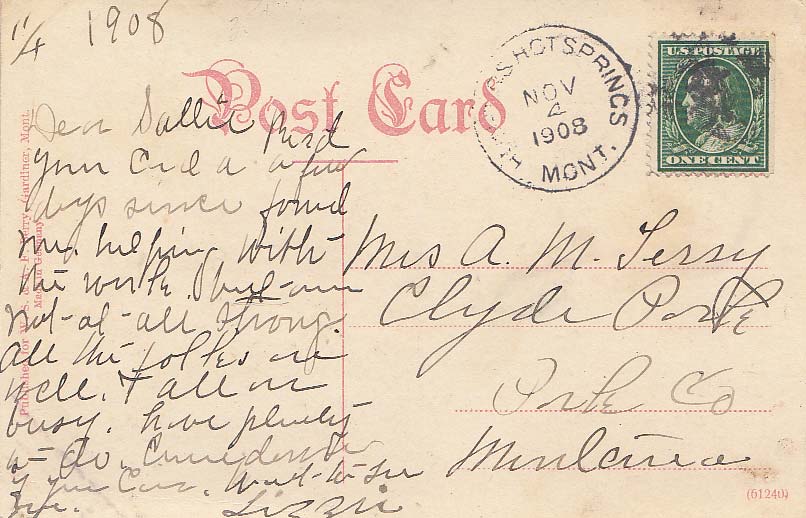 11/4 1908
Post Card
HUNTERS HOT SPRINGS
NOV
4
1908
MONT.
U.S. POSTAGE
ONE CENT
Dear Sallie Recd
your Card a few
days since found
me helping with
the work. but am
not-at-all strong.
All the folks are
well. & all are
busy. have plenty
to do. Come down
if you Can. Want-to-see
you.
Lizzie
Mrs A. M. Terry
Clyde Park
Park Co
Montana
Published for W. S. Berry, Gardiner, Mont.
Made in Germany
(51240)